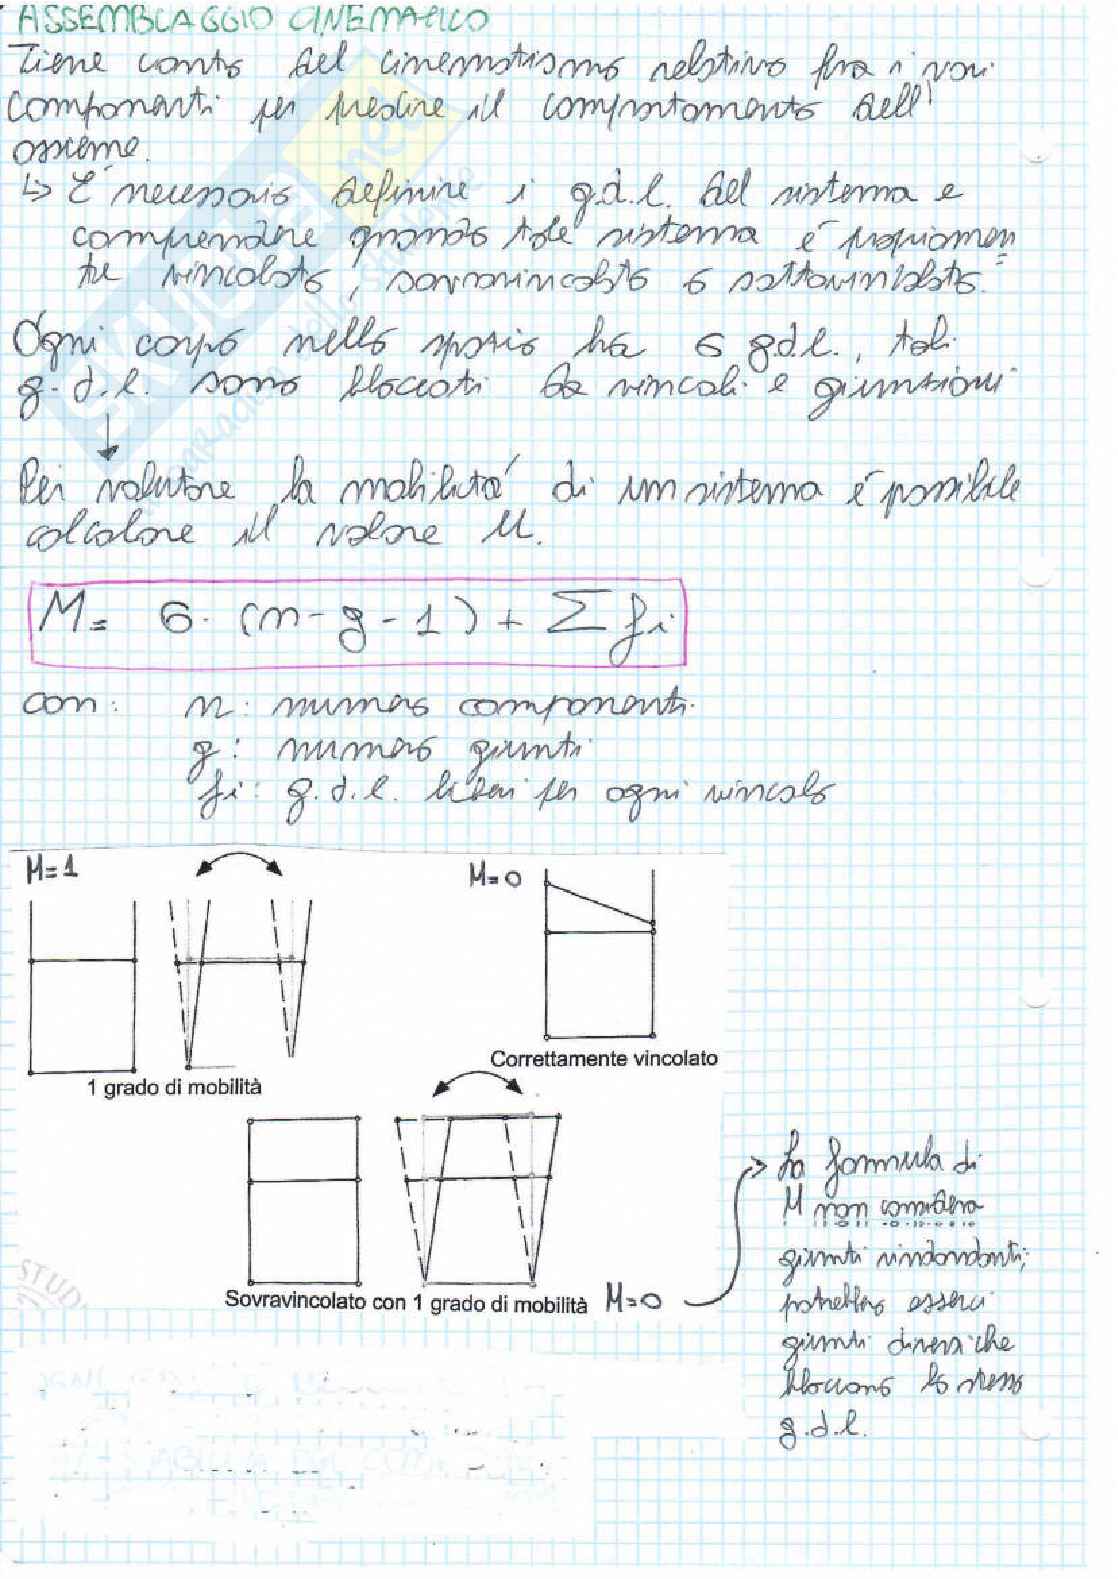 ASSEMBLAGGIO CINEMATICO
Tiene conto del cinematismo relativo fra i vari
componenti per predire il comportamento dell'
assieme.
↳ É necessario definire i g.d.l. del sistema e
comprendere quando tale sistema é propriamen
te vincolato, sovravincolato o sottovincolato.
Ogni corpo nello spazio ha 6 g.d.l., tali
g.d.l. sono bloccati da vincoli e giunzioni
Per valutare la mobilitá di un sistema é possibile
calcolare il valore M.
M = 6 · (n - g - 1) + Σ fi
con: n: numero componenti
g: numero giunti
fi: g.d.l. liberi per ogni vincolo
M=1
M=0
Correttamente vincolato
1 grado di mobilità
Sovravincolato con 1 grado di mobilità M=0
La formula di
M non considera
giunti rindondanti;
potrebbero esserci
giunti diversi che
bloccano lo stesso
g.d.l.
SKUOLA.net
STUD